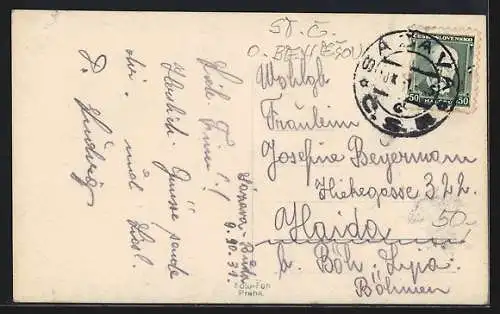 ST. Č.
O. BENEŠOV
ČESKOSLOVENSKO
50 50
SÁZAVA
Wohlgb
Fräulein
Josefine Beyermann
Hichegasse 322.
Haida
b. Böh. Lypa.
Böhmen
50.
Sázava-Buda
9.10.31.
Lieb. Finni!
Herzlich. Grüsse sendet
dir
mal
L. Ludwig
Foto-Fon
Praha